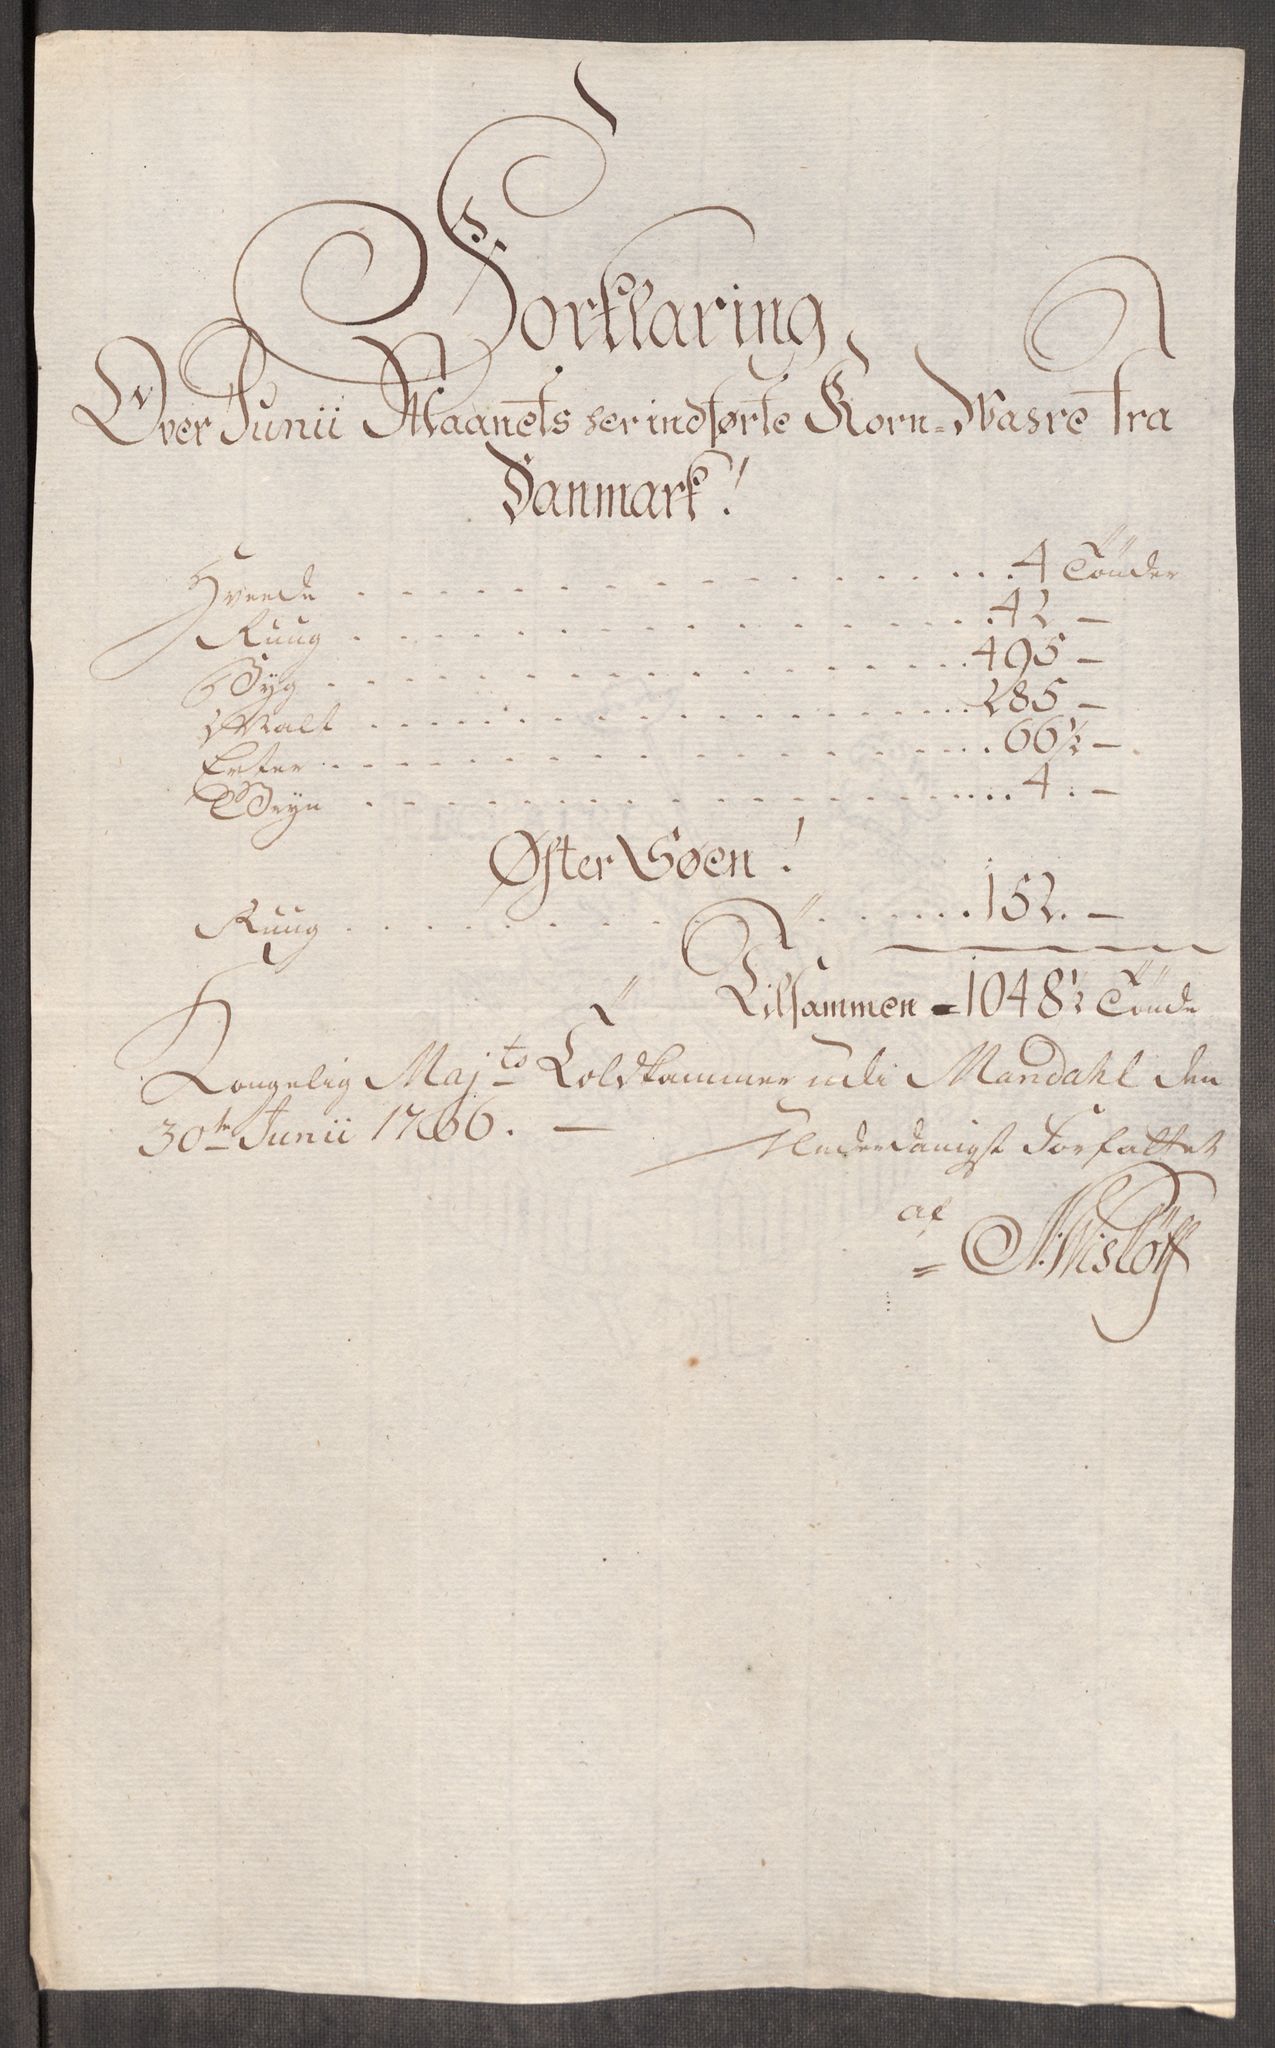 Forklaring
Over Junii Maanets her indførte Korn-Wahre fra
Danmark!
Hveede . . . . . . . . . . . . . . . . 4 Tönder
Ruug . . . . . . . . . . . . . . . . 42 —
Byg . . . . . . . . . . . . . . . . 495 —
Malt . . . . . . . . . . . . . . . . 285 —
Erter . . . . . . . . . . . . . . . . 66½ —
Gryn . . . . . . . . . . . . . . . . 4 . —
Øster Søen!
Ruug . . . . . . . . . . . . . . . . 152. —
Tilsammen = 1048½ Tönde
Kongelig Maj:ts Toldkammer udi Mandahl den
30te Junii 1766. —
Underdanigst Forfattet
af
N: Wislöff